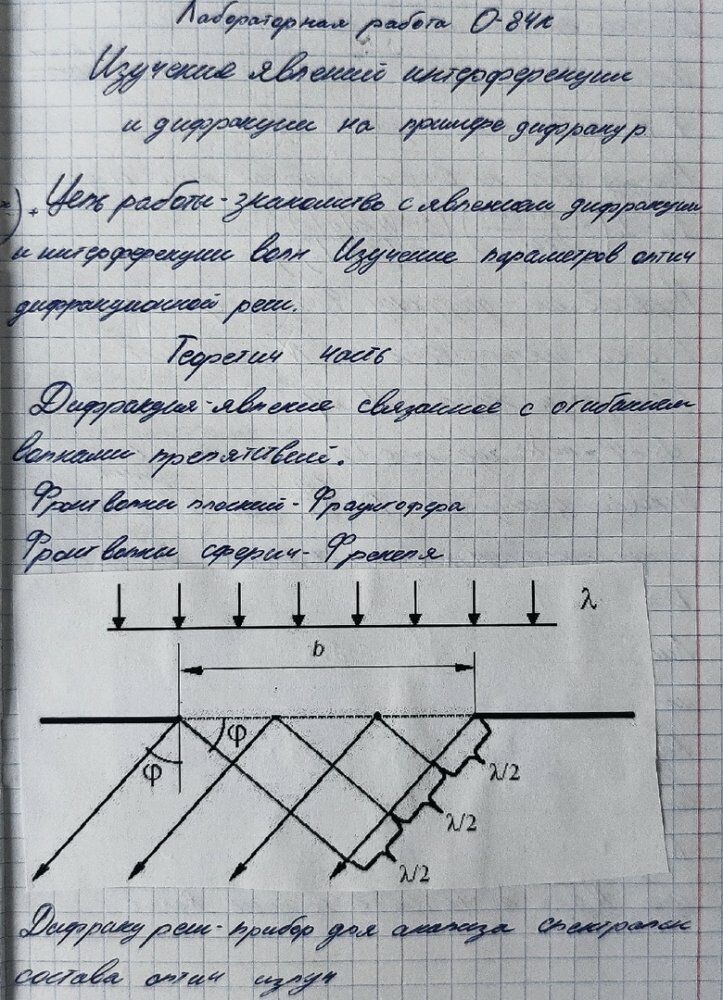 Лабораторная работа О-84к
Изучение явлений интерференции
и дифракции на примере дифракц р
Цель работы - знакомство с явлением дифракции
и интерференции волн Изучение параметров оптич
дифракционной реш.
Теоретич часть
Дифракция - явление связанное с огибанием
волнами препятствий.
Фронт волны плоский - Фраунгофера
Фронт волны сферич - Френеля
λ
b
φ
φ
λ/2
λ/2
λ/2
Дифракц реш - прибор для анализа спектральн
состава оптич излуч